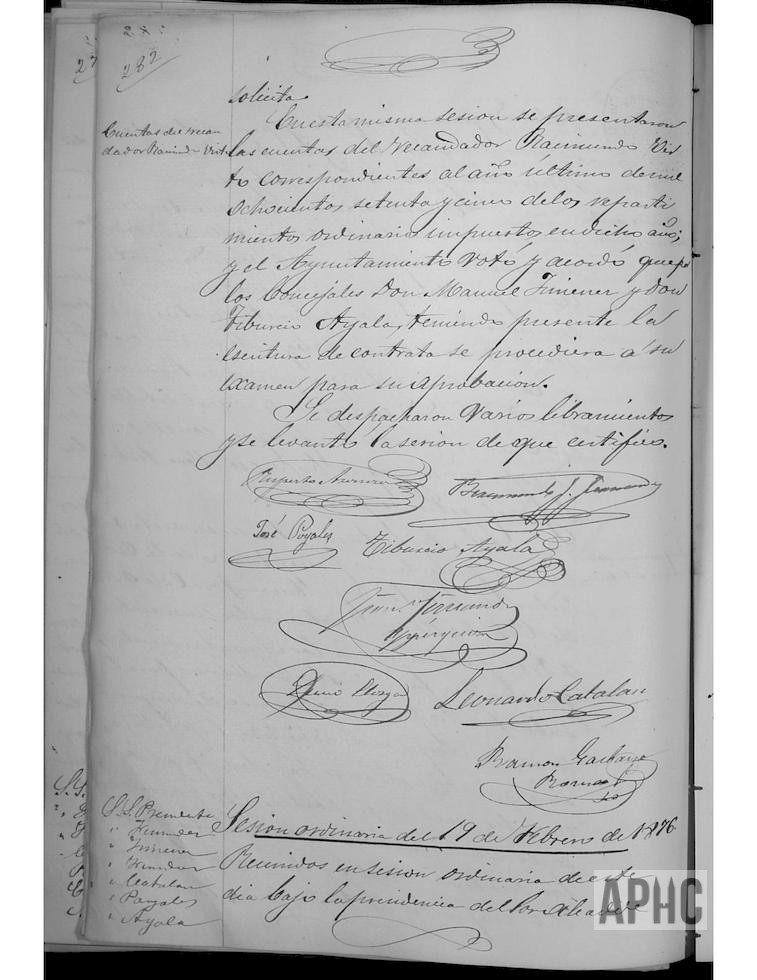 282
solicita
Cuentas del recau
dador Raimundo Virto
En esta misma sesion se presentaron
las cuentas del recaudador Raimundo Vir
to correspondientes al año último de mil
ochocientos setenta y cinco de los reparti
mientos ordinarios impuestos en dicho año;
y el Ayuntamiento votó y acordó que por
los Concejales Don Manuel Jimenez y Don
Tiburcio Ayala, teniendo presente la
escritura de contrata se procediera á su
examen para su aprobacion.
Se despacharon varios libramientos
y se levantó la sesion de que certifico.
Ruperto
Raimundo J.
José Poyales
Tiburcio Ayala
Leonardo Catalan
Ramon
S.S. Presidente
" Jimenez
" Catalan
" Poyales
" Ayala
Sesion ordinaria del 19 de Febrero de 1876
Reunidos en sesion ordinaria de este
dia bajo la presidencia del Sor Alcalde
APHC